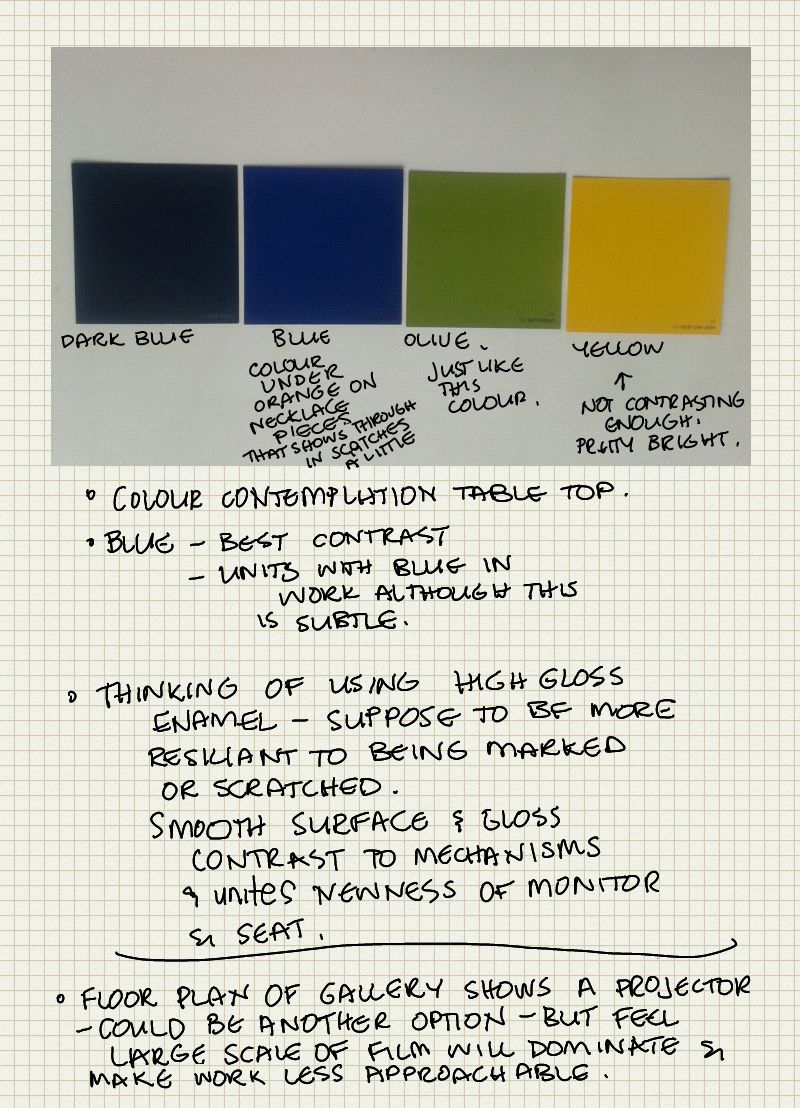 DARK BLUE
BLUE
COLOUR
UNDER
ORANGE ON
NECKLACE
PIECES
THAT SHOWS THROUGH
IN SCATCHES
A LITTLE
OLIVE.
JUST LIKE
THIS
COLOUR.
YELLOW
↑
NOT CONTRASTING
ENOUGH.
PRETTY BRIGHT.
• COLOUR CONTEMPLATION TABLE TOP.
• BLUE – BEST CONTRAST
– UNITS WITH BLUE IN
WORK ALTHOUGH THIS
IS SUBTLE.
• THINKING OF USING HIGH GLOSS
ENAMEL – SUPPOSE TO BE MORE
RESILIANT TO BEING MARKED
OR SCRATCHED.
SMOOTH SURFACE & GLOSS
CONTRAST TO MECHANISMS
& unites NEWNESS OF MONITOR
& SEAT.
• FLOOR PLAN OF GALLERY SHOWS A PROJECTOR
– COULD BE ANOTHER OPTION – BUT FEEL
LARGE SCALE OF FILM WILL DOMINATE &
MAKE WORK LESS APPROACHABLE.